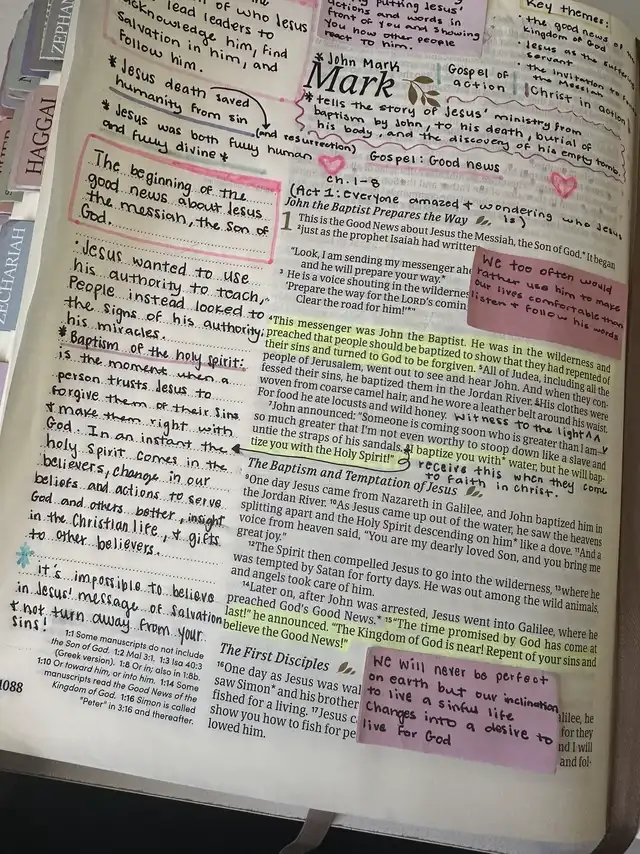 of who Jesus
lead leaders to
acknowledge him, find
salvation in him, and
follow him.
putting Jesus'
actions and words in
front of you and showing
you how other people
react to him.
Key themes:
• the good news of
kingdom of God
• Jesus as the
servant
• the invitation to
the Messiah
Christ in action
ZEPHAN
HAGGAI
ZECHARIAH
* Jesus death saved
humanity from sin
(and resurrection)
* Jesus was both fully human
and fully divine *
* John Mark
Mark
Gospel of
action
* tells the story of Jesus' ministry from
baptism by John, to his death, burial of
his body, and the discovery of his empty tomb.
Gospel: Good news
ch. 1-8
(Act 1: everyone amazed + wondering who Jesus
is)
The beginning of the
good news about Jesus
the messiah, the son of
God.
• Jesus wanted to use
his authority to teach,
People instead looked to
the signs of his authority:
his miracles.
* Baptism of the holy spirit:
is the moment when a
person trusts Jesus to
forgive them of their sins
+ make them right with
God. In an instant the
holy spirit comes in the
believers, change in our
beliefs and actions to serve
God and others better, insight
in the Christian life, + gifts
to other believers.
It's impossible to believe
in Jesus' message of salvation
+ not turn away from your
sins!
1:1 Some manuscripts do not include
the Son of God. 1:2 Mal 3:1. 1:3 Isa 40:3
(Greek version). 1:8 Or in; also in 1:8b.
1:10 Or toward him, or into him. 1:14 Some
manuscripts read the Good News of the
Kingdom of God. 1:16 Simon is called
"Peter" in 3:16 and thereafter.
1088
John the Baptist Prepares the Way
1 This is the Good News about Jesus the Messiah, the Son of God.* It began
2 just as the prophet Isaiah had written
"Look, I am sending my messenger ahe
and he will prepare your way."
3 He is a voice shouting in the wilderne
'Prepare the way for the LORD's comin
Clear the road for him!'*"
We too often would
rather use him to make
our lives comfortable than
listen + follow his words
4 This messenger was John the Baptist. He was in the wilderness and
preached that people should be baptized to show that they had repented of
their sins and turned to God to be forgiven. 5 All of Judea, including all the
people of Jerusalem, went out to see and hear John. And when they con-
fessed their sins, he baptized them in the Jordan River. 6 His clothes were
woven from coarse camel hair, and he wore a leather belt around his waist.
For food he ate locusts and wild honey.
witness to the light ^^
7 John announced: "Someone is coming soon who is greater than I am—
so much greater that I'm not even worthy to stoop down like a slave and
untie the straps of his sandals. 8 I baptize you with* water, but he will bap-
tize you with the Holy Spirit!"
receive this when they come
to faith in christ.
The Baptism and Temptation of Jesus
9 One day Jesus came from Nazareth in Galilee, and John baptized him in
the Jordan River. 10 As Jesus came up out of the water, he saw the heavens
splitting apart and the Holy Spirit descending on him* like a dove. 11 And a
voice from heaven said, "You are my dearly loved Son, and you bring me
great joy."
12 The Spirit then compelled Jesus to go into the wilderness, 13 where he
was tempted by Satan for forty days. He was out among the wild animals,
and angels took care of him.
14 Later on, after John was arrested, Jesus went into Galilee, where he
preached God's Good News.* 15 "The time promised by God has come at
last!" he announced. "The Kingdom of God is near! Repent of your sins and
believe the Good News!"
The First Disciples
16 One day as Jesus was wal
saw Simon* and his brother
fished for a living. 17 Jesus c
show you how to fish for pe
lowed him.
We will never be perfect
on earth but our inclination
to live a sinful life
changes into a desire to
live for God
alilee, he
for they
nd I will
and fol-